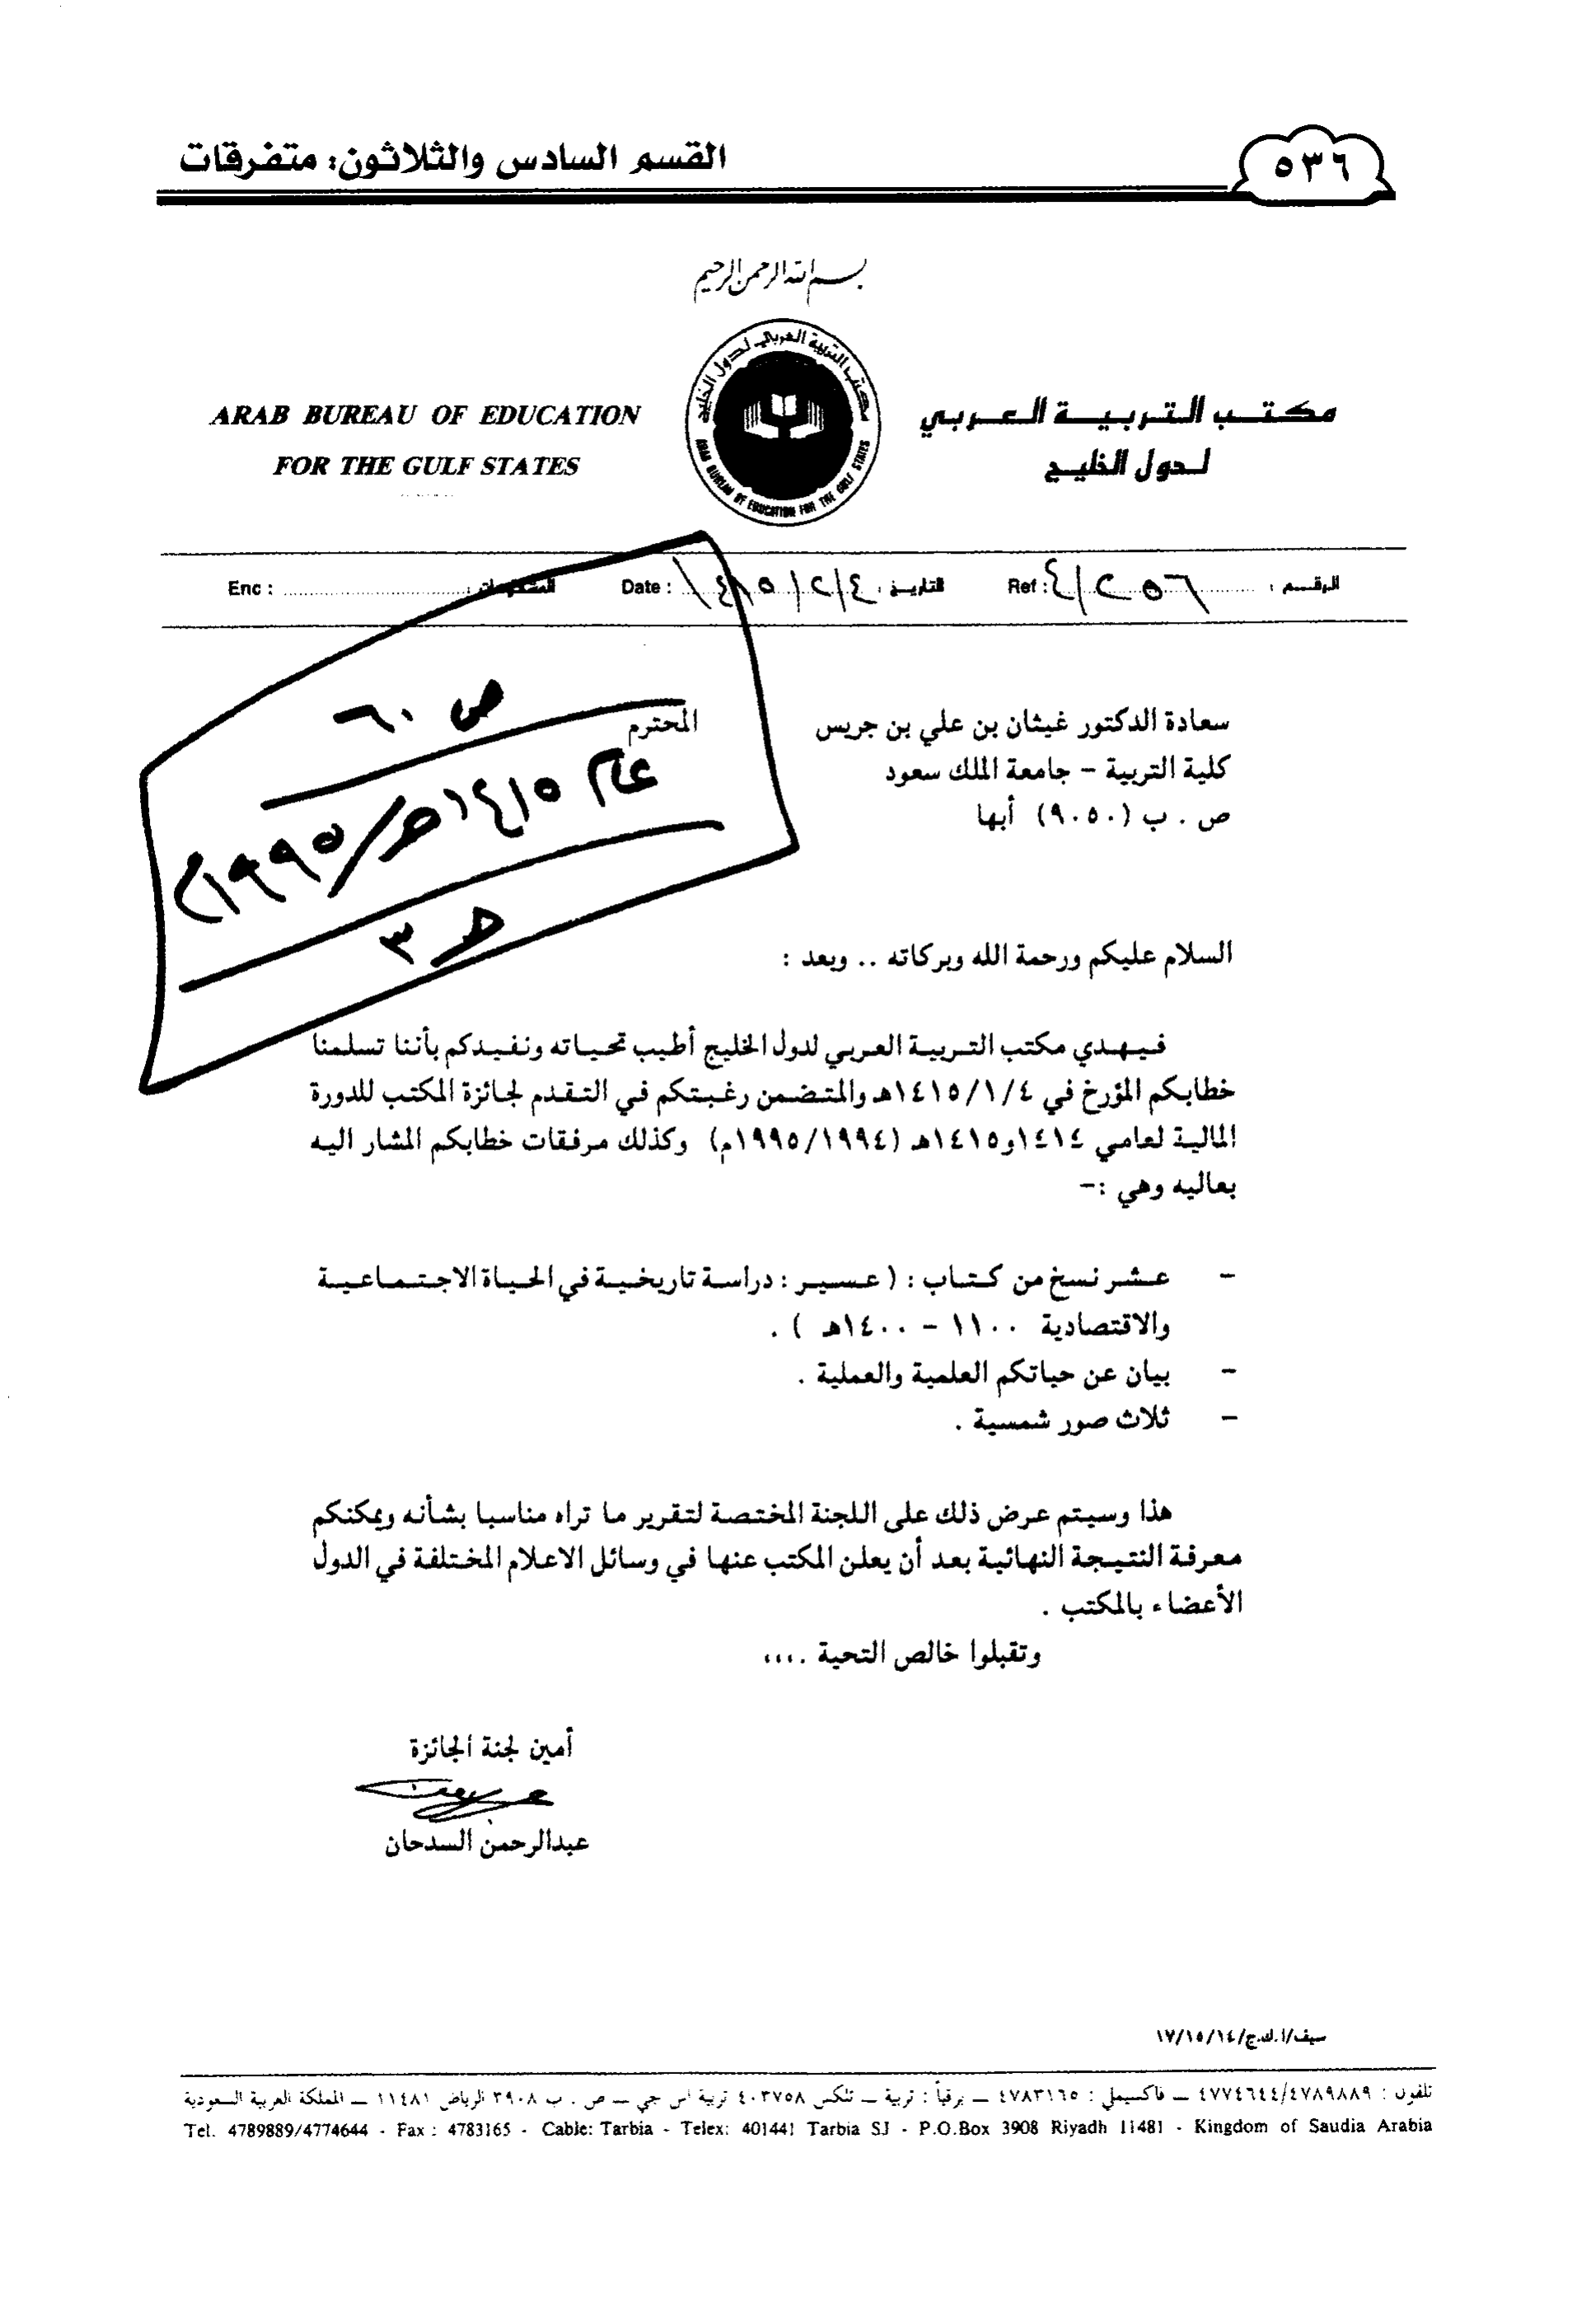 ٥٣٦
القسم السادس والثلاثون: متفرقات
بسم الله الرحمن الرحيم
مكتب التربية العربي
لدول الخليج
ARAB BUREAU OF EDUCATION
FOR THE GULF STATES
مكتب التربية العربي لدول الخليج
ARAB BUREAU OF EDUCATION FOR THE GULF STATES
الرقم : ٦٥٢/٤ Ref : التاريخ : ٤/٢/١٤١٥ Date : المشفوعات : Enc :
ص ٦٠
عام ١٤١٥هـ/١٩٩٥م
هـ ٣
سعادة الدكتور غيثان بن علي بن جريس المحترم
كلية التربية - جامعة الملك سعود
ص . ب (٩٠٥٠) أبها
السلام عليكم ورحمة الله وبركاته .. وبعد :
فيهدي مكتب التربية العربي لدول الخليج أطيب تحياته ونفيدكم بأننا تسلمنا
خطابكم المؤرخ في ١٤١٥/١/٤هـ والمتضمن رغبتكم في التقدم لجائزة المكتب للدورة
المالية لعامي ١٤١٤و١٤١٥هـ (١٩٩٥/١٩٩٤م) وكذلك مرفقات خطابكم المشار اليه
بعاليه وهي :-
- عشر نسخ من كتاب : ( عسير : دراسة تاريخية في الحياة الاجتماعية
والاقتصادية ١١٠٠ - ١٤٠٠هـ ) .
- بيان عن حياتكم العلمية والعملية .
- ثلاث صور شمسية .
هذا وسيتم عرض ذلك على اللجنة المختصة لتقرير ما تراه مناسبا بشأنه ويمكنكم
معرفة النتيجة النهائية بعد أن يعلن المكتب عنها في وسائل الاعلام المختلفة في الدول
الأعضاء بالمكتب .
وتقبلوا خالص التحية .،،،
أمين لجنة الجائزة
عبدالرحمن السدحان
سيف/ا.ك.ج/١٧/١٥/١٤
تلفون : ٤٧٧٤٦٤٤/٤٧٨٩٨٨٩ ــ فاكسيملي : ٤٧٨٣١٦٥ ــ برقياً : تربية ــ تلكس ٤٠٣٧٥٨ تربية اس جي ــ ص . ب ٣٩٠٨ الرياض ١١٤٨١ ــ المملكة العربية السعودية
Tel. 4789889/4774644 - Fax : 4783165 - Cable: Tarbia - Telex: 401441 Tarbia SJ - P.O.Box 3908 Riyadh 11481 - Kingdom of Saudia Arabia